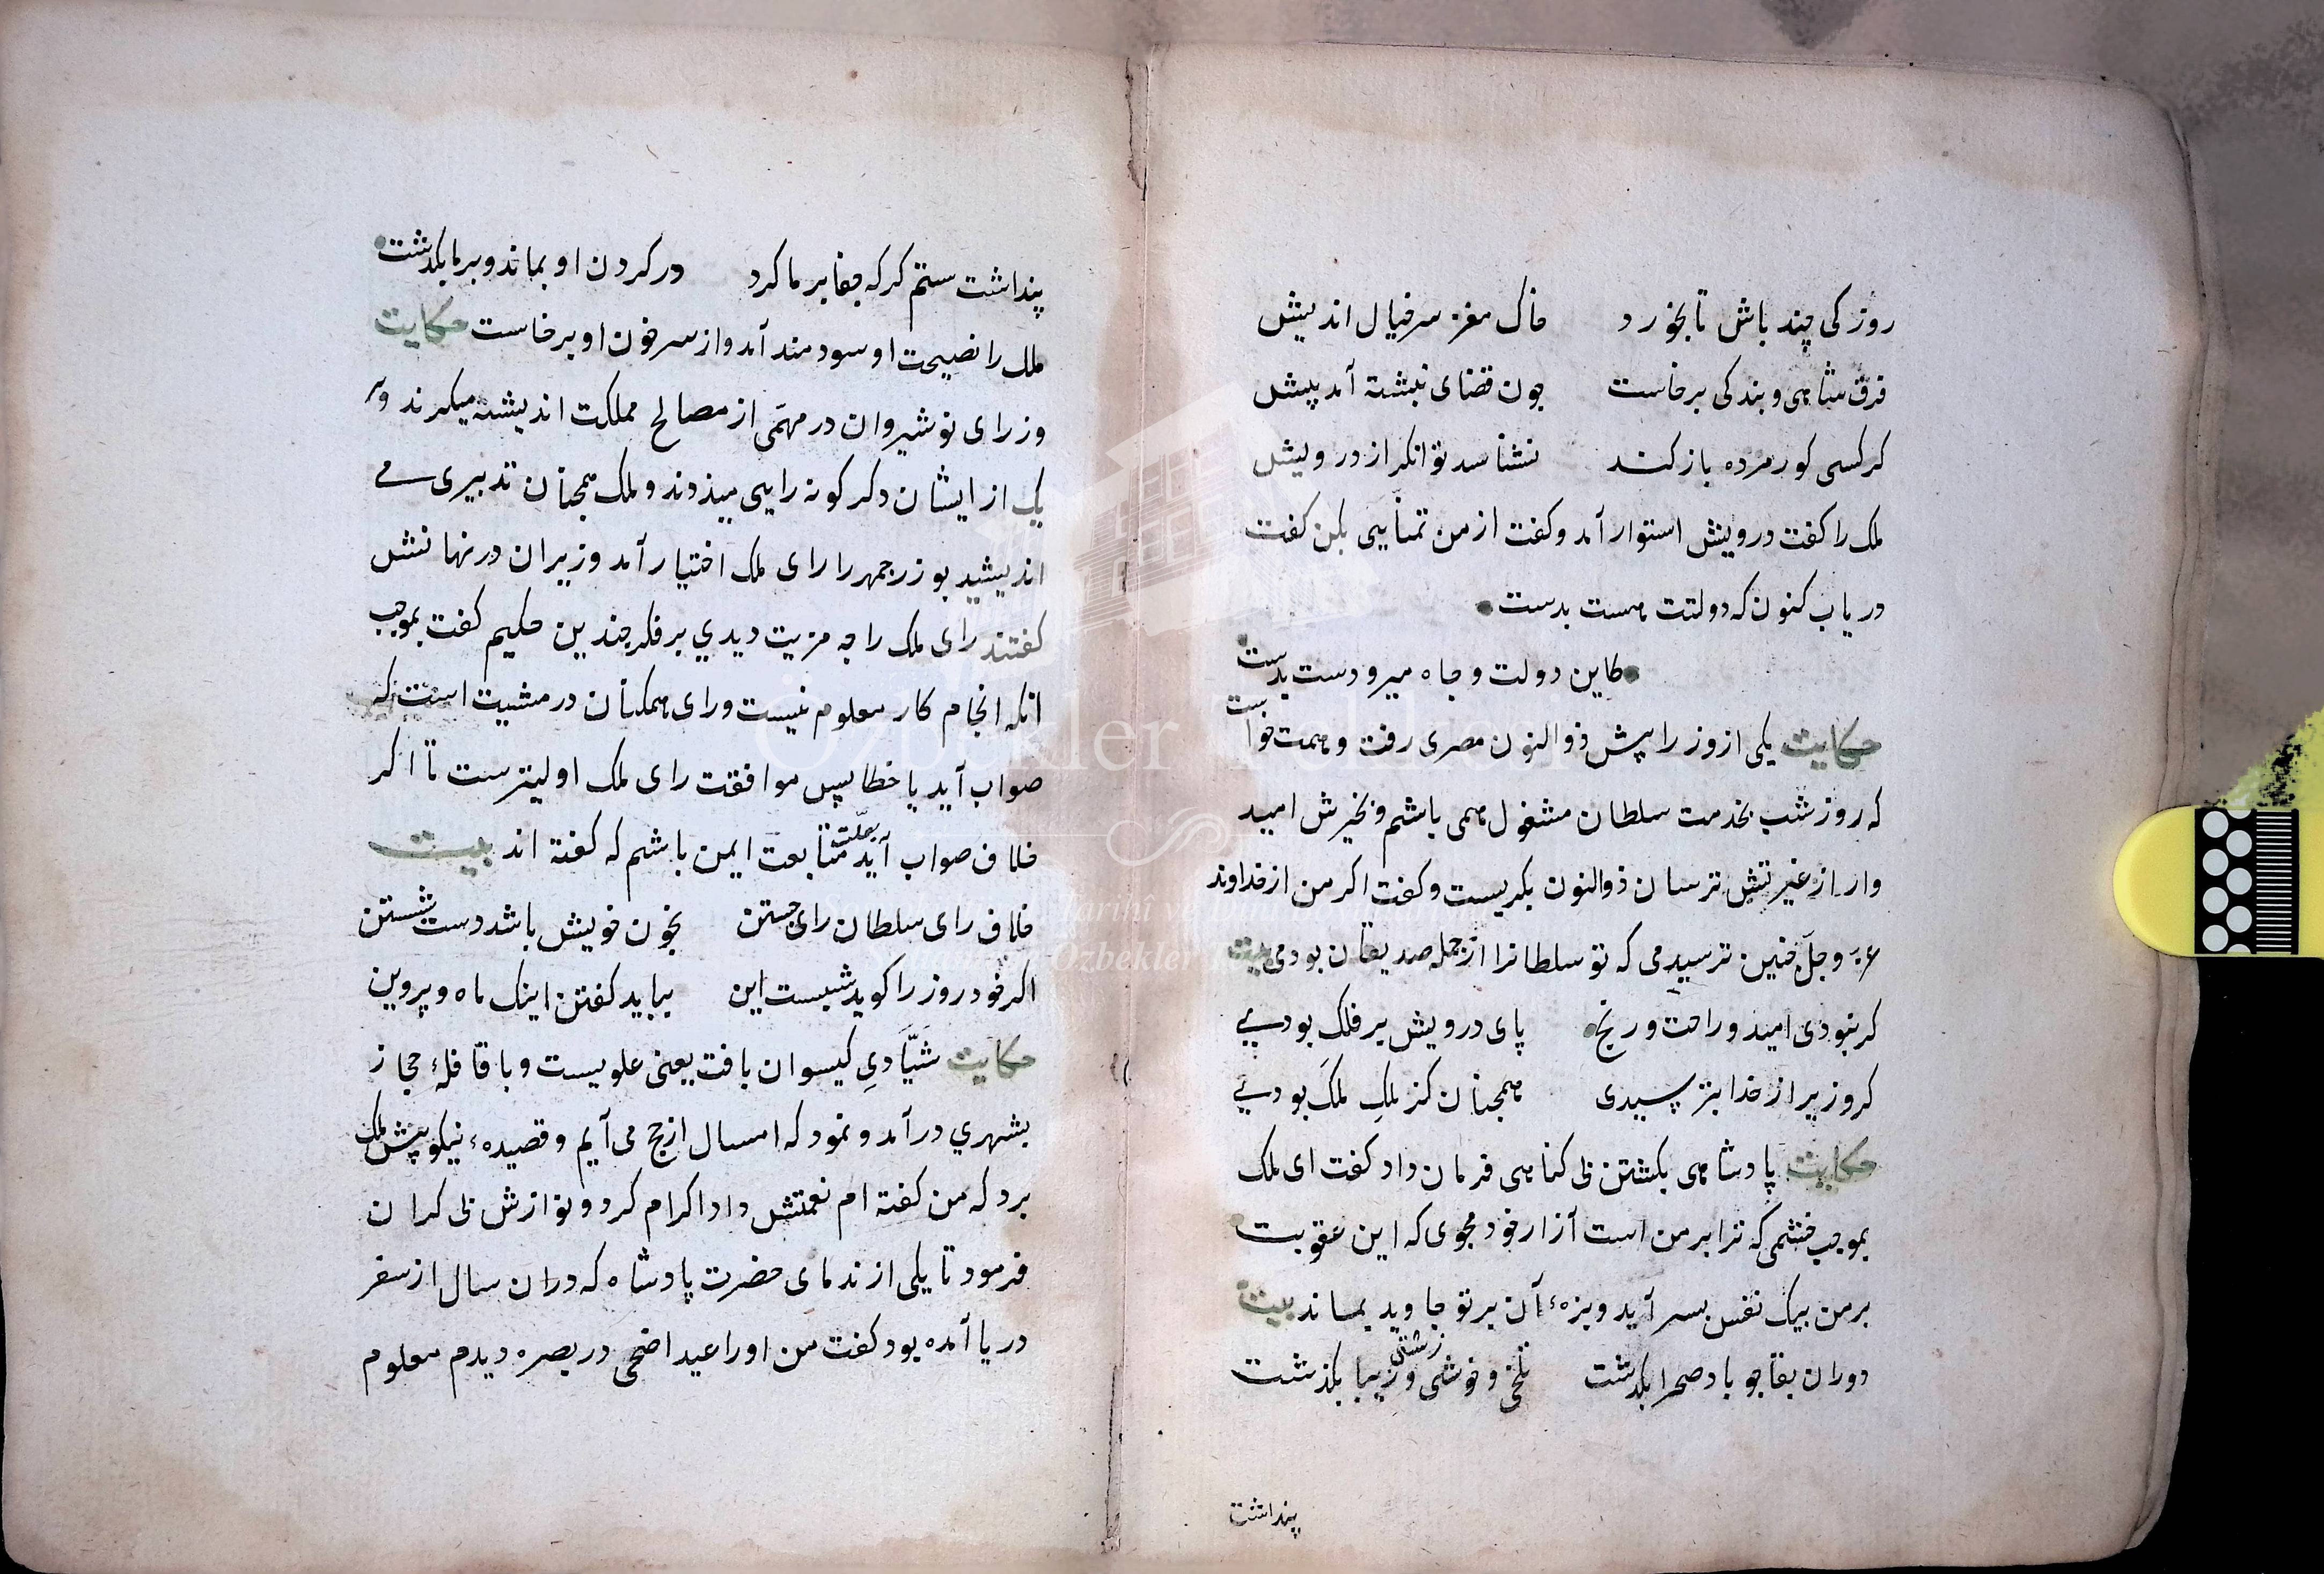 روزکی چند باش تا بخورد خاک مغز سر خیال اندیش
فرق شاهی و بندکی برخاست چون قضای نبشته آمد پیش
کر کسی کور مرده باز کند نشناسد توانکر از درویش
ملک را کفت درویش استوار آمد و کفت از من تمنایی بکن کفت
دریاب کنون که دولتت هست بدست
کاین دولت و جاه میرود دست بدست
حکایت یکی از وزرا پیش ذوالنون مصری رفت و همت خواست
که روز شب بخدمت سلطان مشغول همی باشم و بخیرش امید
وار از غیرتش ترسان ذوالنون بکریست و کفت اکر من از خداوند
عز وجل چنین ترسیدمی که تو سلطانرا از جمله صدیقان بودمی بیت
کر نبودی امید و راحت و رنج پای درویش بر فلک بودی
کر وزیر از خدا بترسیدی همچنان کز ملک ملک بودی
حکایت پادشاهی بکشتن بی کناهی فرمان داد کفت ای ملک
بموجب خشمی که ترا بر من است آزار خود مجوی که این عقوبت
بر من بیک نفس بسر آید و بزهٔ آن بر تو جاوید بماند بیت
دوران بقا چو باد صحرا بکذشت تلخی و خوشی و زشتی زیبا بکذشت
پنداشت
پنداشت ستم کر که جفا بر ما کرد در کردن او بماند و بر ما بکذشت
ملک را نصیحت او سودمند آمد و از سر خون او برخاست حکایت
وزرای نوشیروان در مهمی از مصالح مملکت اندیشه میکردند و هر
یک از ایشان دکر کونه رایی میزدند و ملک همچنان تدبیری می
اندیشید بوزرجمهر را رای ملک اختیار آمد وزیران در نهانش
کفتند رای ملک را چه مزیت دیدی بر فکر چندین حکیم کفت بموجب
انکه انجام کار معلوم نیست و رای همکنان در مشیت است که
صواب آید یا خطا پس موافقت رای ملک اولیترست تا اکر
خلاف صواب آید بعلت متابعت ایمن باشم که کفته اند بیت
خلاف رای سلطان رای جستن بخون خویش باشد دست شستن
اکر خود روز را کوید شبست این بباید کفتن اینک ماه و پروین
حکایت شیّادی کیسوان بافت یعنی علویست و با قافلهٔ حجاز
بشهری درآمد و نمود که امسال از حج می آیم و قصیدهٔ نیکو پیش ملک
برد که من کفته ام نعمتش داد اکرام کرد و نوازش بی کران
فرمود تا یکی از ندمای حضرت پادشاه که دران سال از سفر
دریا آمده بود کفت من اورا عید اضحی در بصره دیدم معلوم
Özbekler Tekkesi